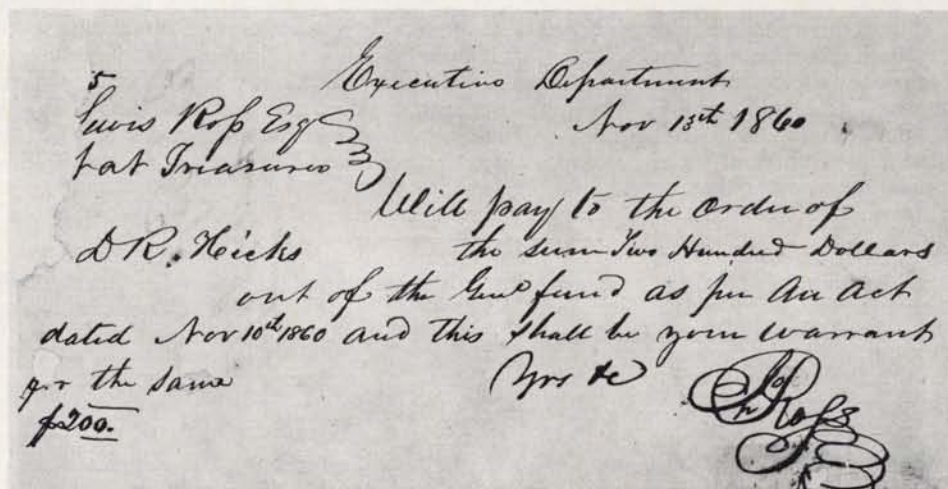 5 Executive Department
Lewis Ross Esq Nov 13th 1860
Nat Treasurer
Will pay to the order of
D R. Hicks the sum Two Hundred Dollars
out of the Genl fund as per An Act
dated Nov 10th 1860 and this shall be your warrant
for the same Yrs &c
$200. Jno Ross